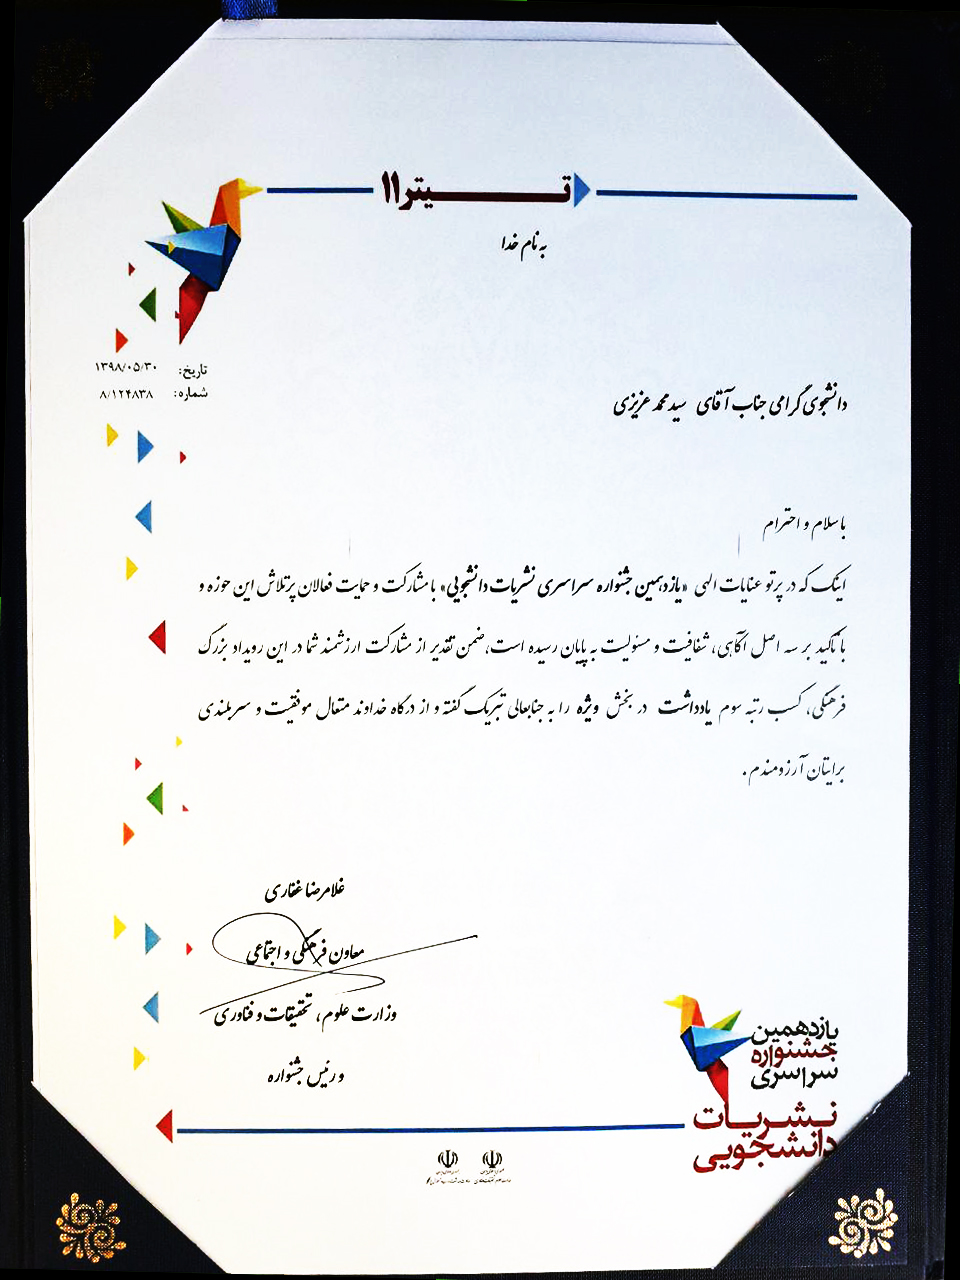 تیتر ۱۱
به نام خدا
تاریخ: ۱۳۹۸/۰۵/۳۰
شماره: ۸/۱۲۴۸۳۸
دانشجوی گرامی جناب آقای سید محمد عزیزی
با سلام و احترام
اینک که در پرتو عنایات الهی «یازدهمین جشنواره سراسری نشریات دانشجویی» با مشارکت و حمایت فعالان پرتلاش این حوزه و
با تاکید بر سه اصل آگاهی، شفافیت و مسئولیت به پایان رسیده است، ضمن تقدیر از مشارکت ارزشمند شما در این رویداد بزرگ
فرهنگی، کسب رتبه سوم یادداشت در بخش ویژه را به جنابعالی تبریک گفته و از درگاه خداوند متعال موفقیت و سربلندی
برایتان آرزومندم.
غلامرضا غفاری
معاون فرهنگی و اجتماعی
وزارت علوم، تحقیقات و فناوری
و رئیس جشنواره
یازدهمین
جشنواره
سراسری
نشریات
دانشجویی